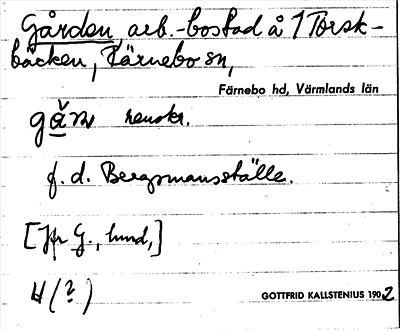 Gården, arb.-bostad å 1 Torsk-
bäcken, Färnebo sn,
Färnebo hd, Värmlands län
renskr.
f. d. Bergsmansställe.
[Jfr G., lund,]
4 (?)
GOTTFRID KALLSTENIUS 1902